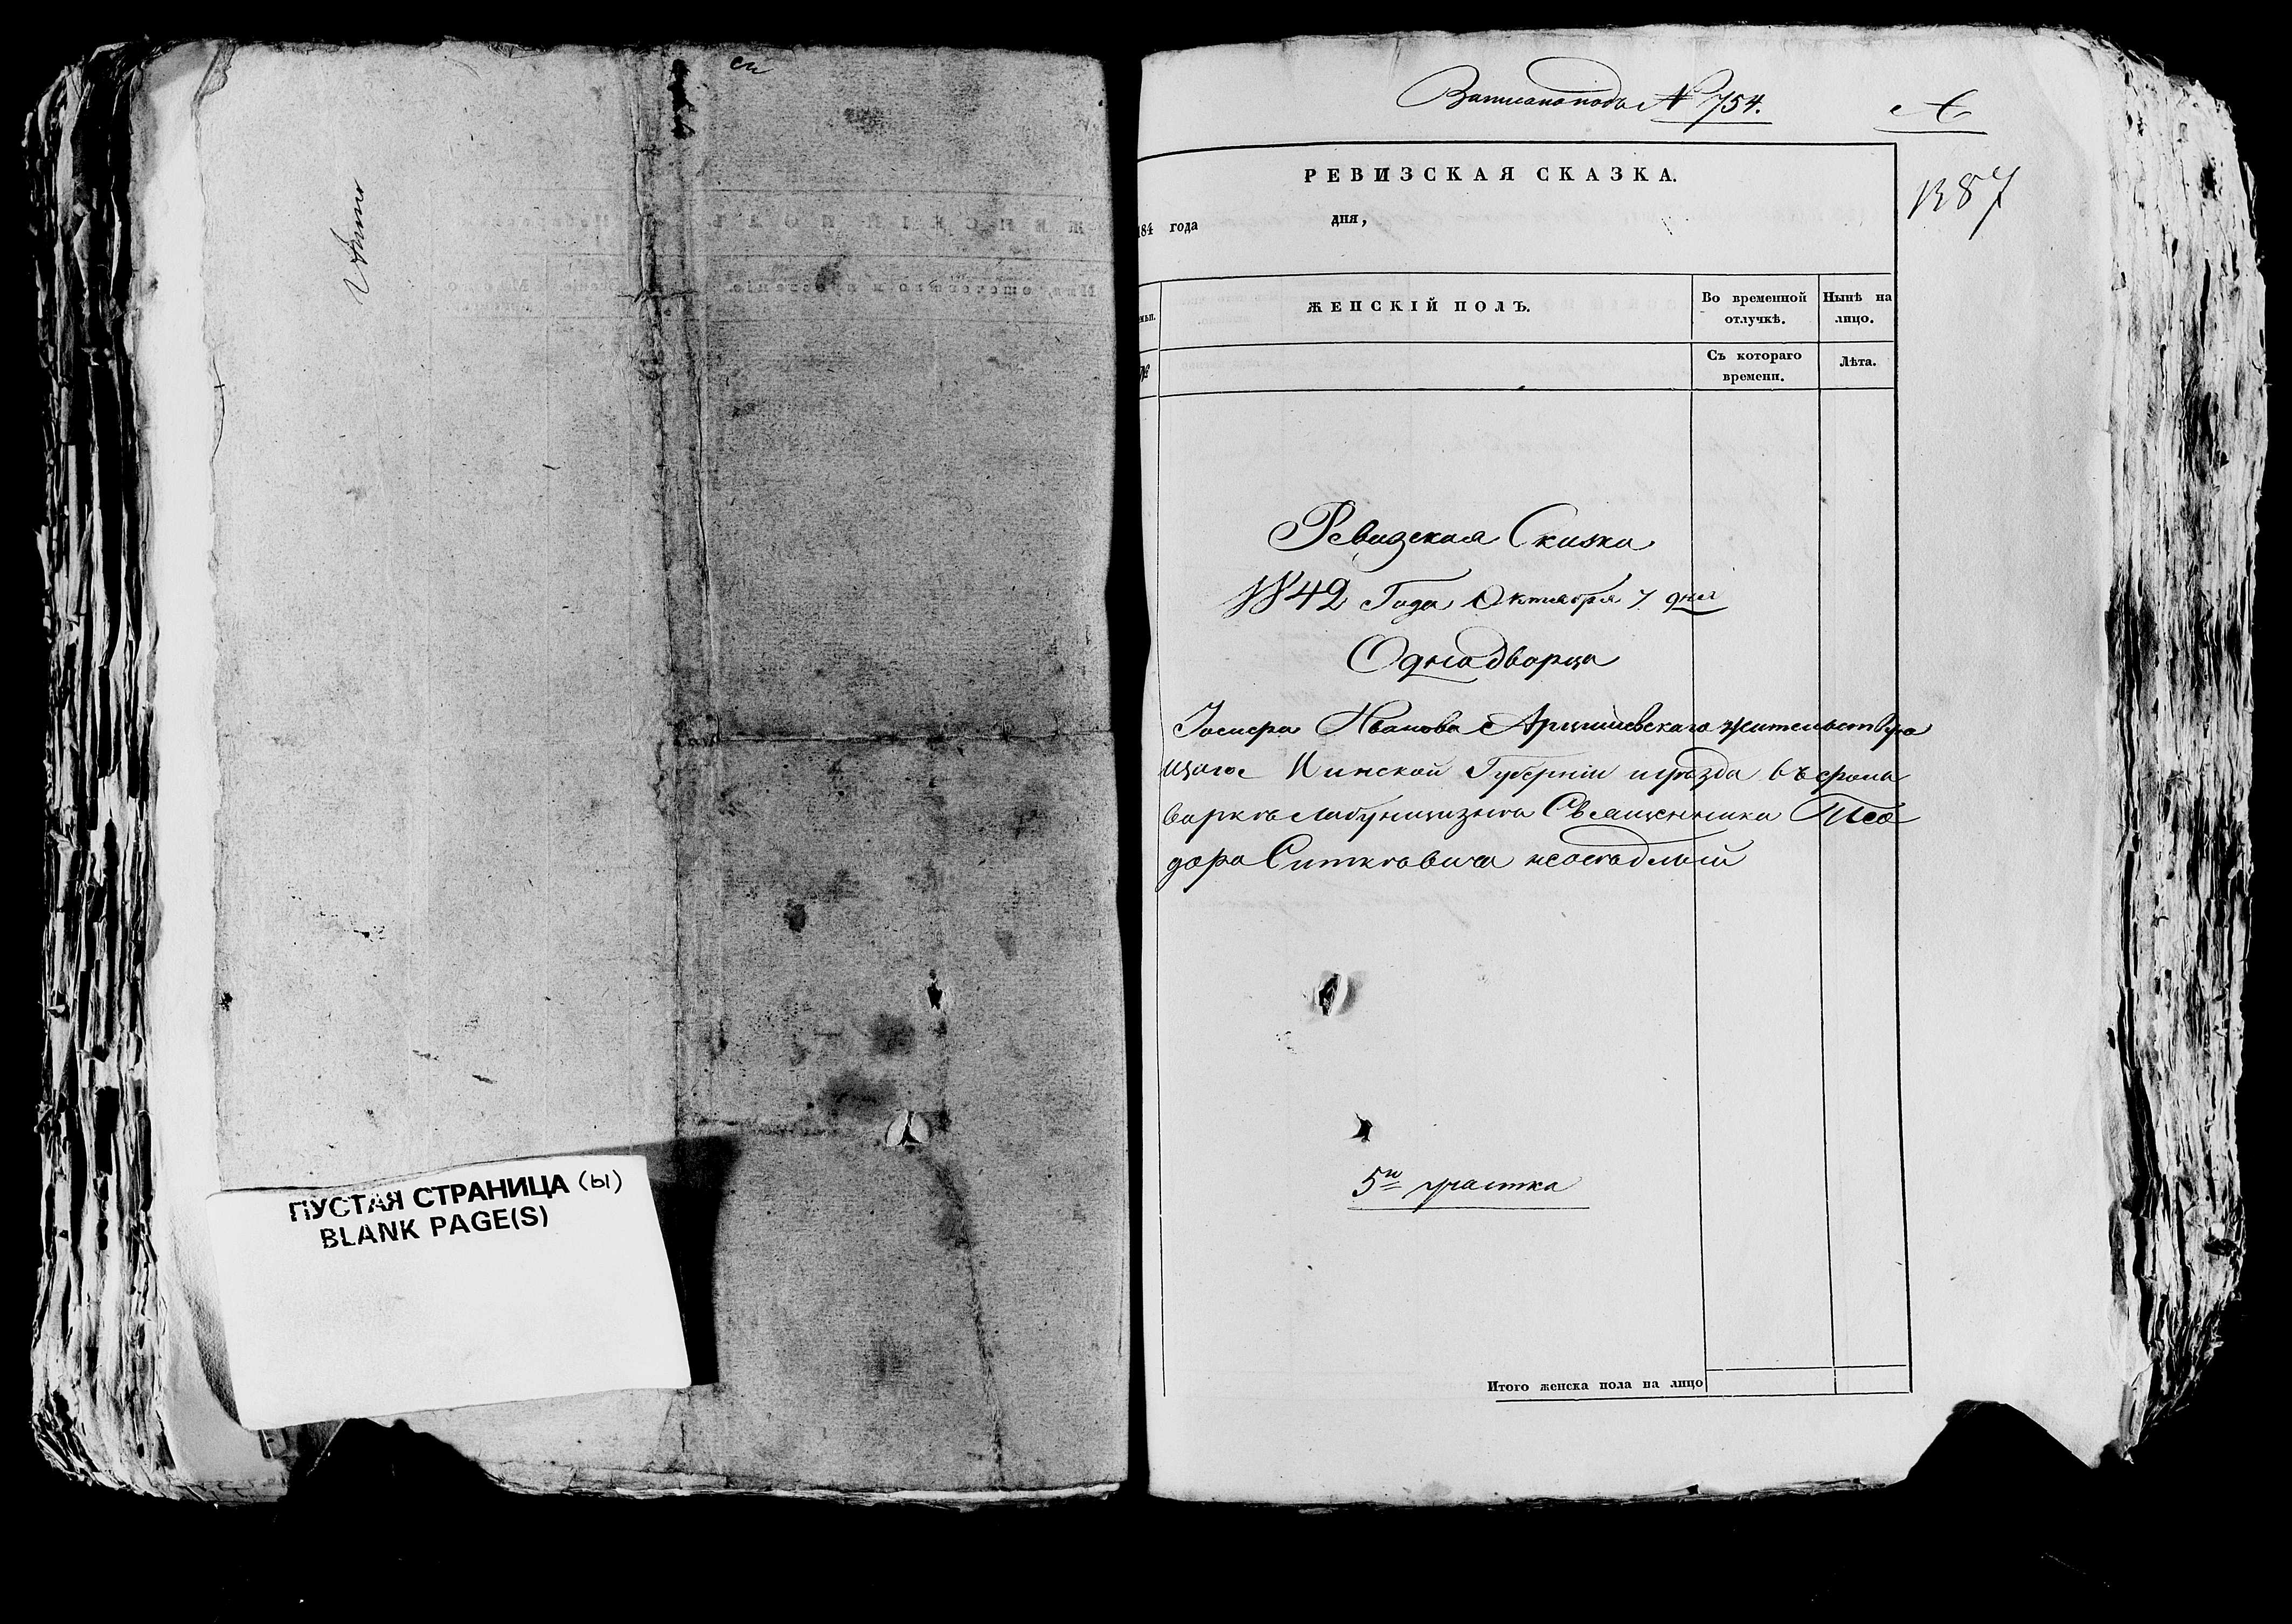 ПУСТАЯ СТРАНИЦА (ы)
BLANK PAGE(S)
Записано подъ № 754.
1387
РЕВИЗСКАЯ СКАЗКА.
184 года дня,
ЖЕНСКІЙ ПОЛЪ.
Во временной отлучкѣ.
Нынѣ на лицо.
№
Съ котораго времени.
Лѣта.
Ревизская Сказка
1842 Года Октября 7 дня
Однодворца
Іосифа Иванова Арцишевскаго жительствую
щаго Минской Губерніи и уѣзда въ фоль
варкѣ Лабунщизна Священника Тео
дора Ситкевича неоседлый
5го участка
Итого женска пола на лицо